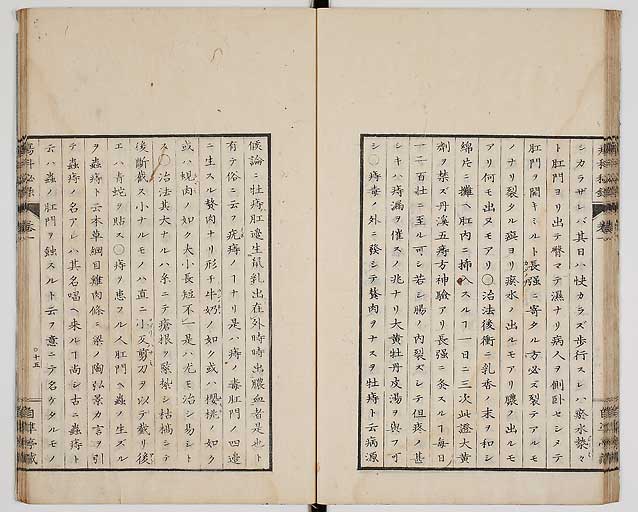 シカラザレバ其日ハ快カラズ歩行スレハ瘀水漐々
ト肛門ヨリ出テ臀マテ濕ナリ病人ヲ側臥セシメテ
肛門ヲ開キミルト長強ニ寄タル方必ズ裂テアルモ
ノナリ裂タル処ヨリ瘀水ノ出ルモアリ膿ノ出ルモ
アリ何モ出ヌモアリ〇治法後衝ニ乳香ノ末ヲ和シ
綿片ニ攤ヘ肛内ニ挿入スルヿ一日ニ三次此證大黄
劑ヲ禁ズ丹溪五痔方神驗アリ長強ニ灸スルヿ毎日
一二百壮ニ至ル可シ若シ腸ノ内裂ズシテ但疼ノ甚
シキハ痔漏ヲ催スノ兆ナリ大黄牡丹皮湯ヲ與フ可
シ〇痔毒ノ外ニ發シテ贅肉ヲナスヲ牡痔ト云病源
候論ニ牡痔肛邊生鼠乳出在外時時出膿血者是也ト
有テ俗ニ云フ疣痔ノヿナリ是ハ痔ノ毒肛門ノ四邊
ニ生スル贅肉ナリ形チ牛奶ノ如ク或ハ櫻桃ノ如ク
或ハ塊肉ノ如ク大小長短不一是ハ尤モ治シ易シト
ス〇治法其大ナルハ糸ニテ瘡根ヲ緊紮シ枯槁シテ
後断截ス小ナルモノハ直ニ小刀剪刀ヲ以テ截リ後
エハ青蛇ヲ貼ス〇痔ヲ患フル人肛門ヘ蟲ノ生ズル
ヲ蟲痔ト云本草綱目雞肉條ニ梁ノ陶弘景カ言ヲ引
テ蟲痔ノ名アレハ其名唱ヘ来ルヿ尚シ古ニ蟲痔ト
云ハ蟲ノ肛門ヲ蝕スルト云フ意ニテ名ケタルモノ
瘍科秘録
巻一
〇十五
自準亭蔵